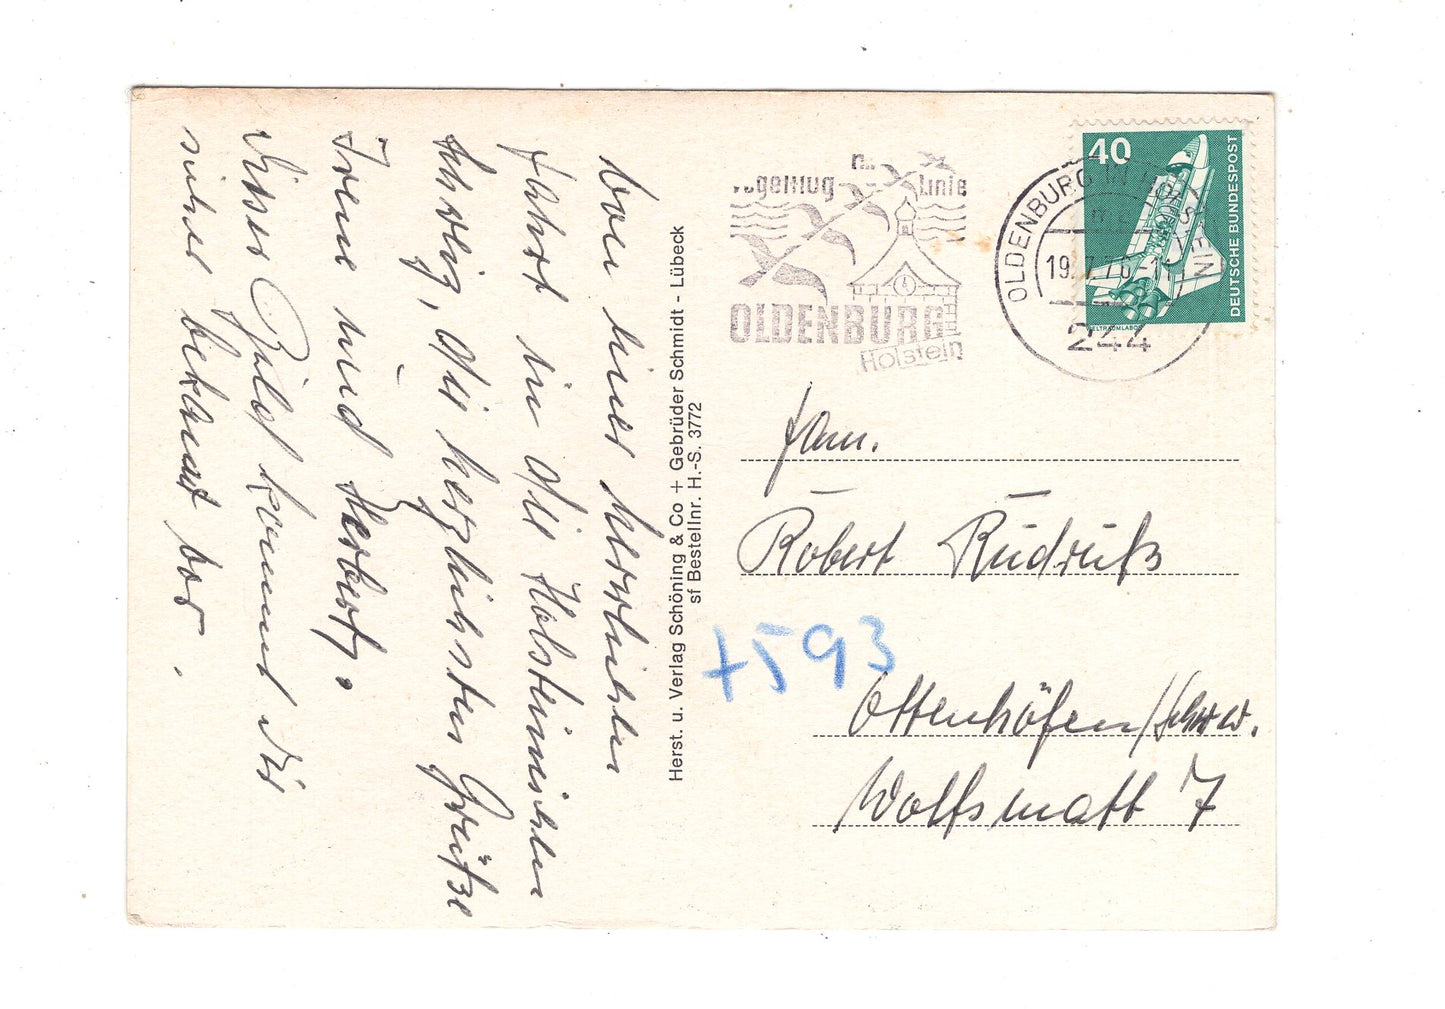 Von einer herrlichen
Fahrt in die Holsteinischen
Schweiz, die herzlichsten Grüße
Irene und Herbert.
Dieses Bild kommt Dir
sicher bekannt vor.
Herst. u. Verlag Schöning & Co + Gebrüder Schmidt - Lübeck
sf Bestellnr. H.-S. 3772
Linie
OLDENBURG
Holstein
OLDENBURG IN HOLSTEIN
19.7.76
244
40
DEUTSCHE BUNDESPOST
WELTRAUMLABOR
Fam.
Robert
+593
Ottenhöfen/Schww.
Wolfsmatt 7